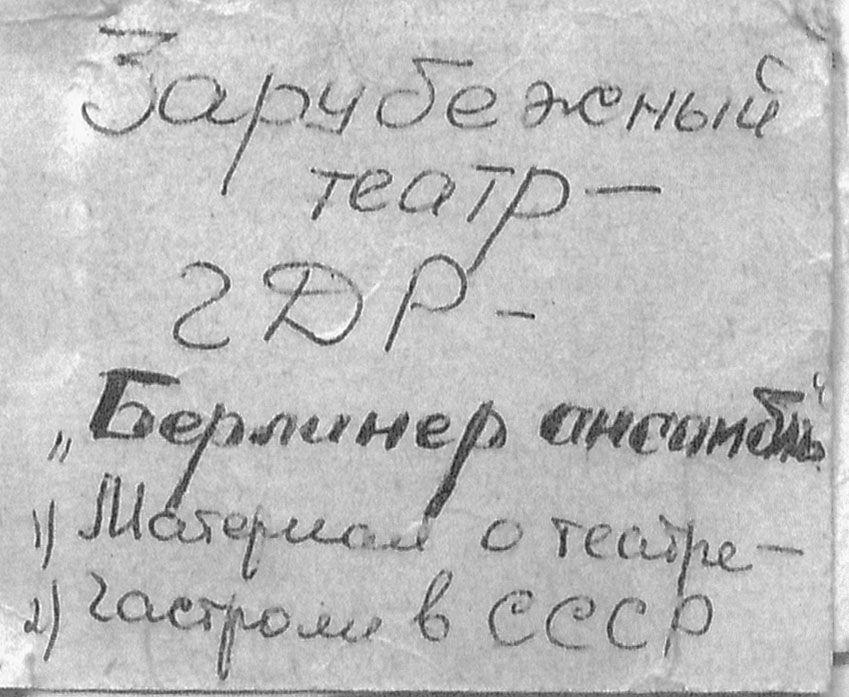 Зарубежный
театр —
ГДР -
„Берлинер ансамбль"
1) Материал о театре —
2) гастроли в СССР